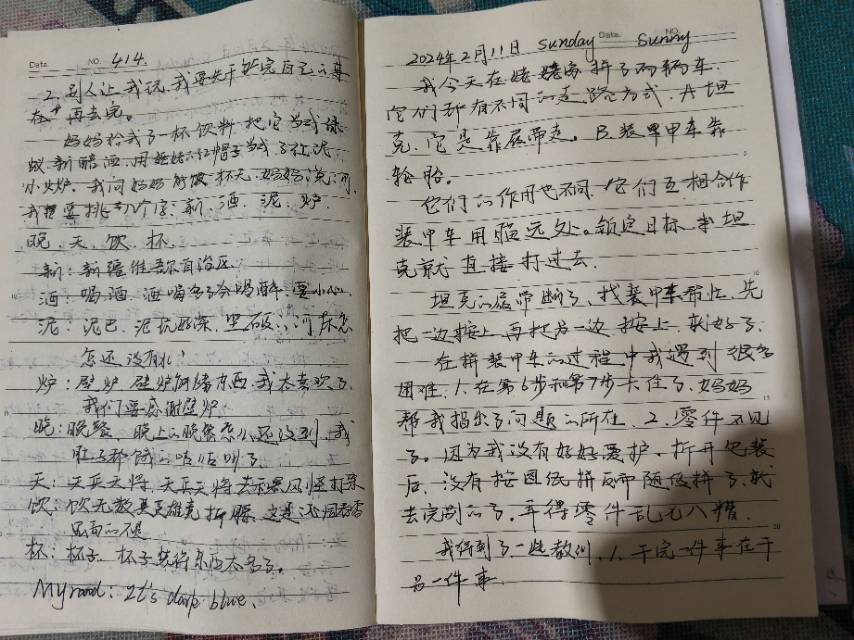 Date. NO. 414.
2. 别人让我玩，我要先干完自己的事
在 再去完。
妈妈给我了一杯饮料，把它当成绿
蚁新醅酒，用姥姥的红帽子当成了红泥
小火炉。我问妈妈能饮一杯无，妈妈说：可，
我想要挑八个字：新、酒、泥、炉
晚、天、饮、杯
新：新疆维吾尔自治区
酒：喝酒，酒喝多了会喝醉，要小心。
泥：泥巴，泥坑好深
怎还没有
炉：壁炉，壁炉 东西，我太喜欢了
我们要感谢壁炉
晚：晚餐，晚上的晚餐怎么还没到，我
肚子都饿的咕咕叫了
天：天兵天将，天兵天将去
饮：饮
的不是
杯：杯子，杯子 东西太多了。
My mood: It's dark blue.
2024年2月11日 Sunday Date. NO. Sunny
我今天在姥姥家拼了两辆车
它们都有不同的走路方式，A.坦
克，它是靠履带走。B.装甲车靠
轮胎。
它们的作用也不同，它们互相合作
装甲车用瞄远处。锁定目标，坦
克就直接打过去。
坦克的履带断了，找装甲车帮忙，先
把一边接上，再把另一边接上，就好了。
在拼装甲车的过程中我遇到很多
困难，1.在第6步和第7步卡住了，妈妈
帮我指出了问题的所在，2.零件不见
了。因为我没有好好爱护，拆开包装
后，没有按图纸拼而随便拼了，就
去完别的了，弄得零件乱七八糟。
我得到了一些教训，1.干完一件事在干
另一件事